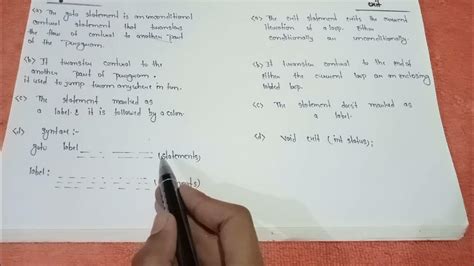 Exit
(a) The goto statement is an unconditional
control statement that transfers
the flow of control to another part
of the program.
(b) It transfer control to the
another part of program.
it used to jump anywhere in
(c) The statement marked as
a label & it is followed by a colon.
(d) Syntax:-
goto label
(statements)
label:
(a) The exit statement exits the current
iteration of a loop. Either
conditionally or unconditionally.
(b) It transfer control to the end of
either the current loop or an enclosing
labled loop.
(c) The statement does't marked as
a label.
(d) Void exit (int status);